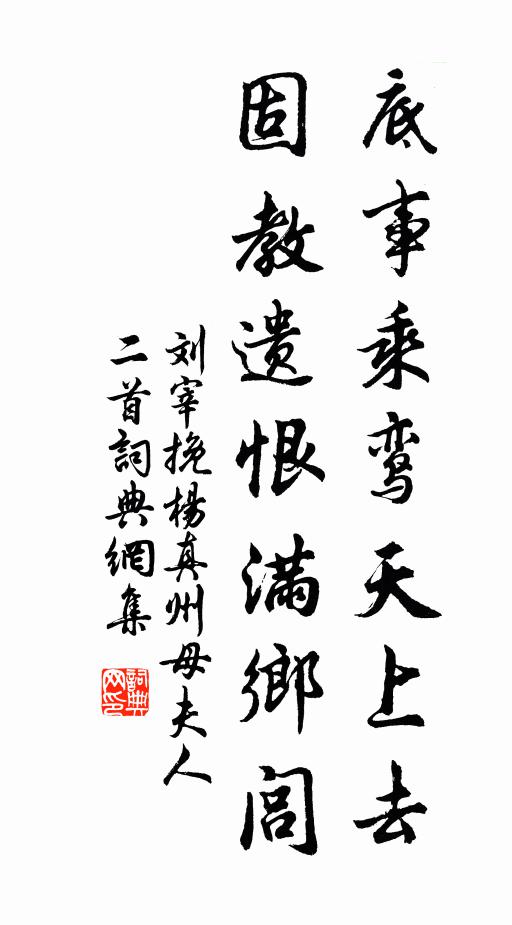 底事乘鸾天上去
固教遗恨满鄉闾
刘宰挽楊真州母夫人
二首詞典網集
詞典网印